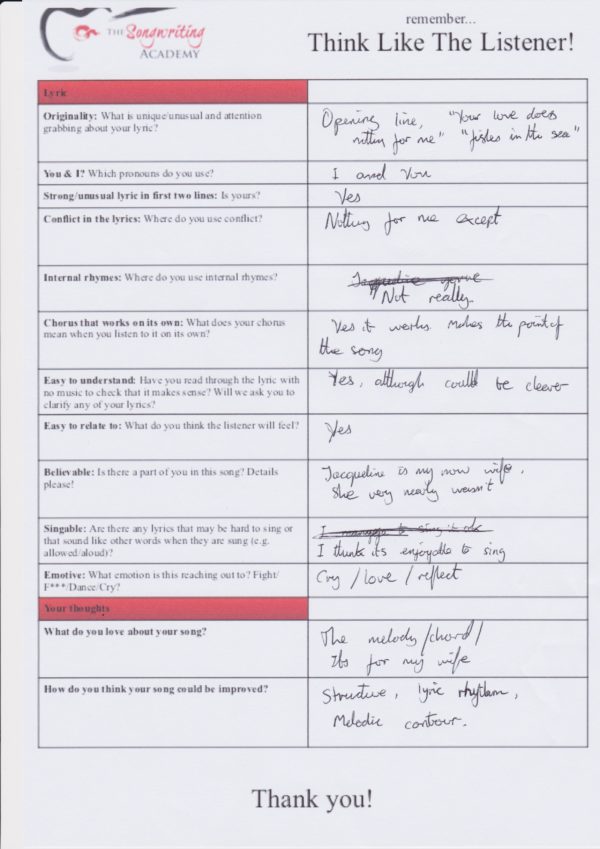 THE Songwriting
ACADEMY
remember...
Think Like The Listener!
Lyric
Originality: What is unique/unusual and attention
grabbing about your lyric?
Opening line, "Your love does
nothing for me" "fishes in the sea"
You & I? Which pronouns do you use?
I and You
Strong/unusual lyric in first two lines: Is yours?
Yes
Conflict in the lyrics: Where do you use conflict?
Nothing for me except
Internal rhymes: Where do you use internal rhymes?
Not really
Chorus that works on its own: What does your chorus
mean when you listen to it on its own?
Yes it works. Makes the point of
the song
Easy to understand: Have you read through the lyric with
no music to check that it makes sense? Will we ask you to
clarify any of your lyrics?
Yes, although could be clearer
Easy to relate to: What do you think the listener will feel?
Yes
Believable: Is there a part of you in this song? Details
please!
Jacqueline is my now wife.
She very nearly wasn't
Singable: Are there any lyrics that may be hard to sing or
that sound like other words when they are sung (e.g.
allowed/aloud)?
I to sing it ok
I think its enjoyable to sing
Emotive: What emotion is this reaching out to? Fight/
F***/Dance/Cry?
Cry / love / reflect
Your thoughts
What do you love about your song?
The melody / chord /
Its for my wife
How do you think your song could be improved?
Structure, lyric rhythm,
Melodic contour.
Thank you!